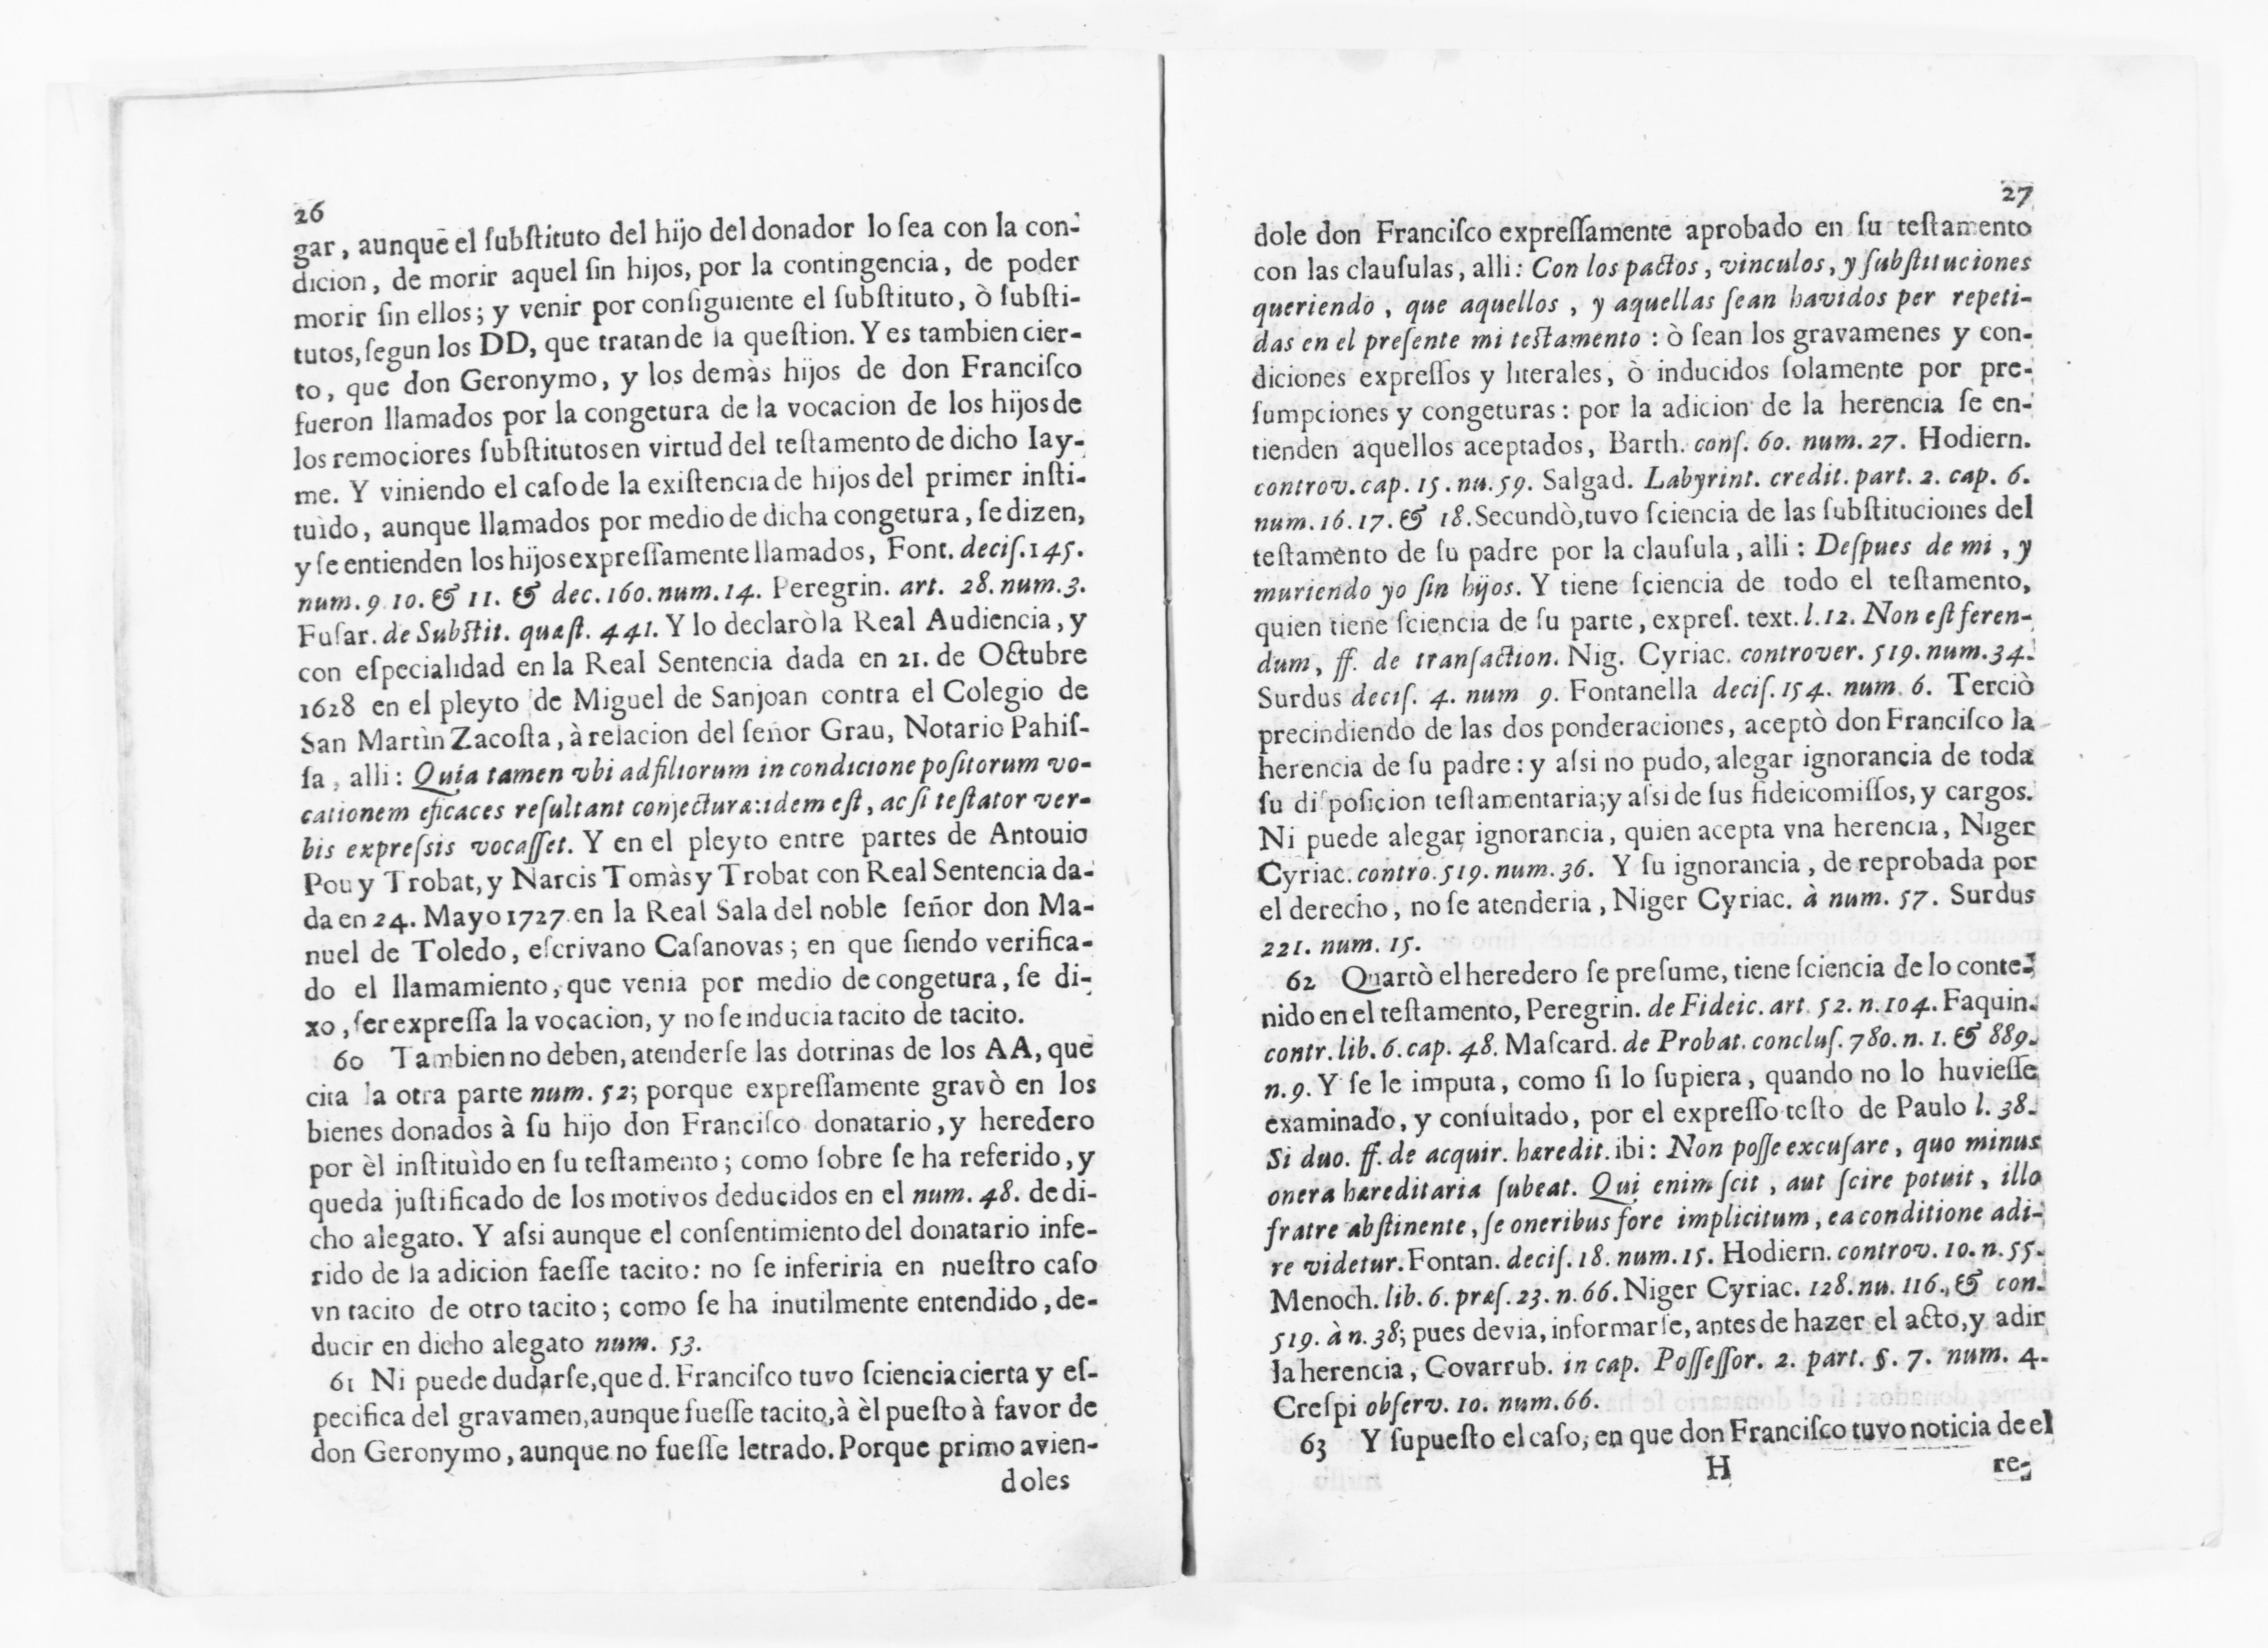 26
gar, aunque el ſubſtituto del hijo del donador lo ſea con la con-
dicion, de morir aquel ſin hijos, por la contingencia, de poder
morir ſin ellos; y venir por conſiguiente el ſubſtituto, ò ſubſti-
tutos, ſegun los DD, que tratan de la queſtion. Y es tambien cier-
to, que don Geronymo, y los demàs hijos de don Franciſco
fueron llamados por la congetura de la vocacion de los hijos de
los remociores ſubſtitutos en virtud del teſtamento de dicho Iay-
me. Y viniendo el caſo de la exiſtencia de hijos del primer inſti-
tuìdo, aunque llamados por medio de dicha congetura, ſe dizen,
y ſe entienden los hijos expreſſamente llamados, Font. deciſ. 145.
num. 9 10. & 11. & dec. 160. num. 14. Peregrin. art. 28. num. 3.
Fuſar. de Subſtit. quæſt. 441. Y lo declarò la Real Audiencia, y
con eſpecialidad en la Real Sentencia dada en 21. de Octubre
1628 en el pleyto de Miguel de Sanjoan contra el Colegio de
San Martìn Zacoſta, à relacion del ſeñor Grau, Notario Pahiſ-
ſa, alli: Quia tamen vbi ad filiorum in condicione poſitorum vo-
cationem eficaces reſultant conjecturæ: idem eſt, ac ſi teſtator ver-
bis expreſsis vocaſſet. Y en el pleyto entre partes de Antouio
Pou y Trobat, y Narcis Tomàs y Trobat con Real Sentencia da-
da en 24. Mayo 1727 en la Real Sala del noble ſeñor don Ma-
nuel de Toledo, eſcrivano Caſanovas; en que ſiendo verifica-
do el llamamiento, que venia por medio de congetura, ſe di-
xo, ſer expreſſa la vocacion, y no ſe inducia tacito de tacito.
60 Tambien no deben, atenderſe las dotrinas de los AA, que
cita la otra parte num. 52; porque expreſſamente gravò en los
bienes donados à ſu hijo don Franciſco donatario, y heredero
por èl inſtituìdo en ſu teſtamento; como ſobre ſe ha referido, y
queda juſtificado de los motivos deducidos en el num. 48. de di-
cho alegato. Y aſsi aunque el conſentimiento del donatario infe-
rido de la adicion faeſſe tacito: no ſe inferiria en nueſtro caſo
vn tacito de otro tacito; como ſe ha inutilmente entendido, de-
ducir en dicho alegato num. 53.
61 Ni puede dudarſe, que d. Franciſco tuvo ſciencia cierta y eſ-
pecifica del gravamen, aunque fueſſe tacito, à èl pueſto à favor de
don Geronymo, aunque no fueſſe letrado. Porque primo avien-
doles
27
dole don Franciſco expreſſamente aprobado en ſu teſtamento
con las clauſulas, alli: Con los pactos, vinculos, y ſubſtituciones
queriendo, que aquellos, y aquellas ſean havidos per repeti-
das en el preſente mi teſtamento: ò ſean los gravamenes y con-
diciones expreſſos y literales, ò inducidos ſolamente por pre-
ſumpciones y congeturas: por la adicion de la herencia ſe en-
tienden aquellos aceptados, Barth. conſ. 60. num. 27. Hodiern.
controv. cap. 15. nu. 59. Salgad. Labyrint. credit. part. 2. cap. 6.
num. 16. 17. & 18. Secundò, tuvo ſciencia de las ſubſtituciones del
teſtamento de ſu padre por la clauſula, alli: Deſpues de mi, y
muriendo yo ſin hijos. Y tiene ſciencia de todo el teſtamento,
quien tiene ſciencia de ſu parte, expreſ. text. l. 12. Non eſt feren-
dum, ff. de tranſaction. Nig. Cyriac. controver. 519. num. 34.
Surdus deciſ. 4. num 9. Fontanella deciſ. 154. num. 6. Terciò
precindiendo de las dos ponderaciones, aceptò don Franciſco la
herencia de ſu padre: y aſsi no pudo, alegar ignorancia de toda
ſu diſpoſicion teſtamentaria; y aſsi de ſus fideicomiſſos, y cargos.
Ni puede alegar ignorancia, quien acepta vna herencia, Niger
Cyriac. contro. 519. num. 36. Y ſu ignorancia, de reprobada por
el derecho, no ſe atenderia, Niger Cyriac. à num. 57. Surdus
221. num. 15.
62 Quartò el heredero ſe preſume, tiene ſciencia de lo conte-
nido en el teſtamento, Peregrin. de Fideic. art. 52. n. 104. Faquin.
contr. lib. 6. cap. 48. Maſcard. de Probat. concluſ. 780. n. 1. & 889.
n. 9. Y ſe le imputa, como ſi lo ſupiera, quando no lo huvieſſe
examinado, y conſultado, por el expreſſo teſto de Paulo l. 38.
Si duo. ff. de acquir. hæredit. ibi: Non poſſe excuſare, quo minus
onera hæreditaria ſubeat. Qui enim ſcit, aut ſcire potuit, illo
fratre abſtinente, ſe oneribus fore implicitum, ea conditione adi-
re videtur. Fontan. deciſ. 18. num. 15. Hodiern. controv. 10. n. 55.
Menoch. lib. 6. præſ. 23. n. 66. Niger Cyriac. 128. nu. 116., & con.
519. à n. 38; pues devia, informarſe, antes de hazer el acto, y adir
la herencia, Covarrub. in cap. Poſſeſſor. 2. part. §. 7. num. 4.
Creſpi obſerv. 10. num. 66.
63 Y ſupueſto el caſo, en que don Franciſco tuvo noticia de el
H re-